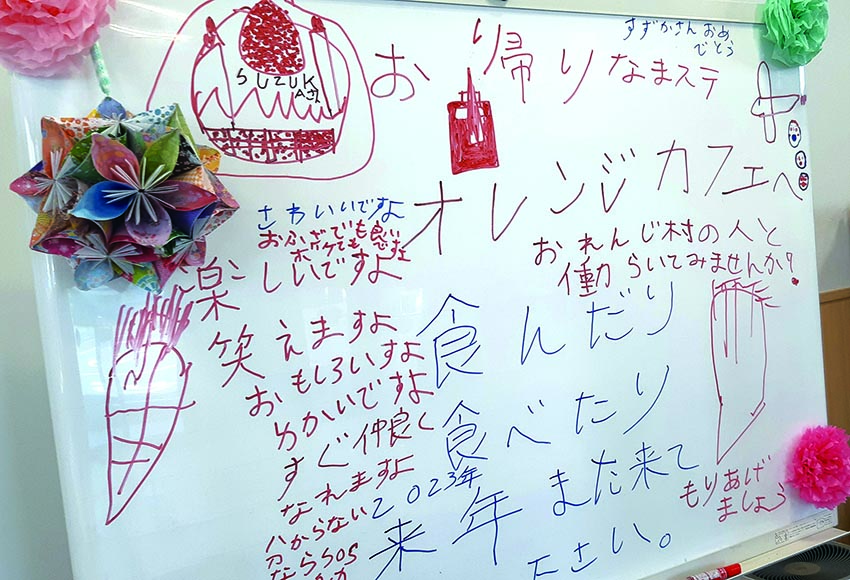 すずかさんおめ
でとう
SUZUK
Aさん
お帰りなまステ
オレンジカフェへ
おれんじ村の人と
働らいてみませんか?
さわいいですよ
おふざでも良い
ボケても
楽しいですよ
笑えますよ
おもしろいすよ
ゆかいですよ
すぐ仲良く
なれますよ
分からない
ならSOS
食んだり
食べたり
2023年
来年また来て
下さい。
もりあげ
ましょう